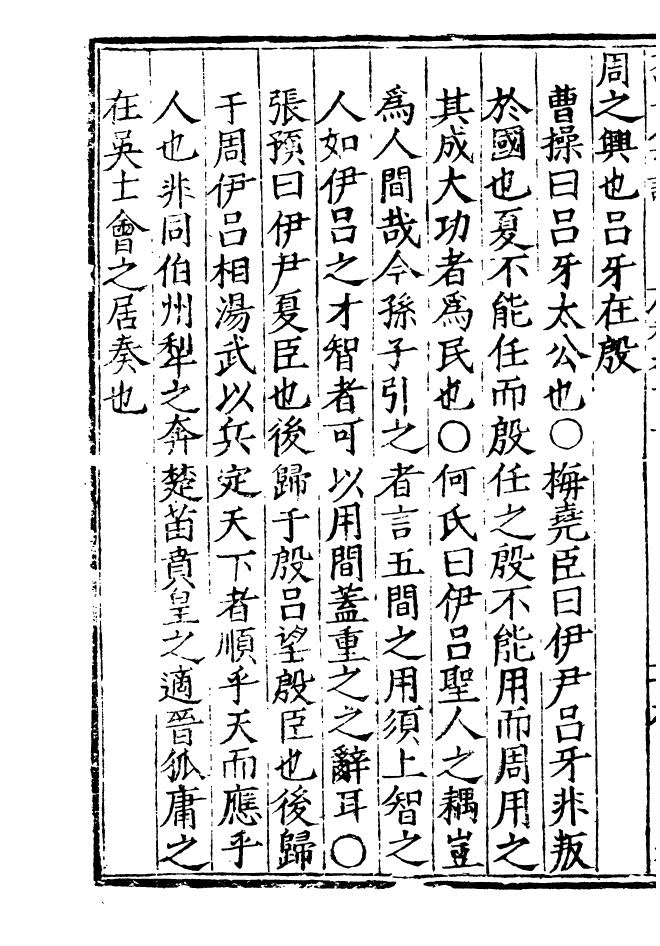 周之興也呂牙在殷
曹操曰呂牙太公也〇梅堯臣曰伊尹呂牙非叛
於國也夏不能任而殷任之殷不能用而周用之
其成大功者為民也〇何氏曰伊呂聖人之耦豈
為人間哉今孫子引之者言五間之用須上智之
人如伊呂之才智者可以用間蓋重之之辭耳〇
張預曰伊尹夏臣也後歸于殷呂望殷臣也後歸
于周伊呂相湯武以兵定天下者順乎天而應乎
人也非同伯州犁之奔楚苗賁皇之適晉狐庸之
在吳士會之居秦也